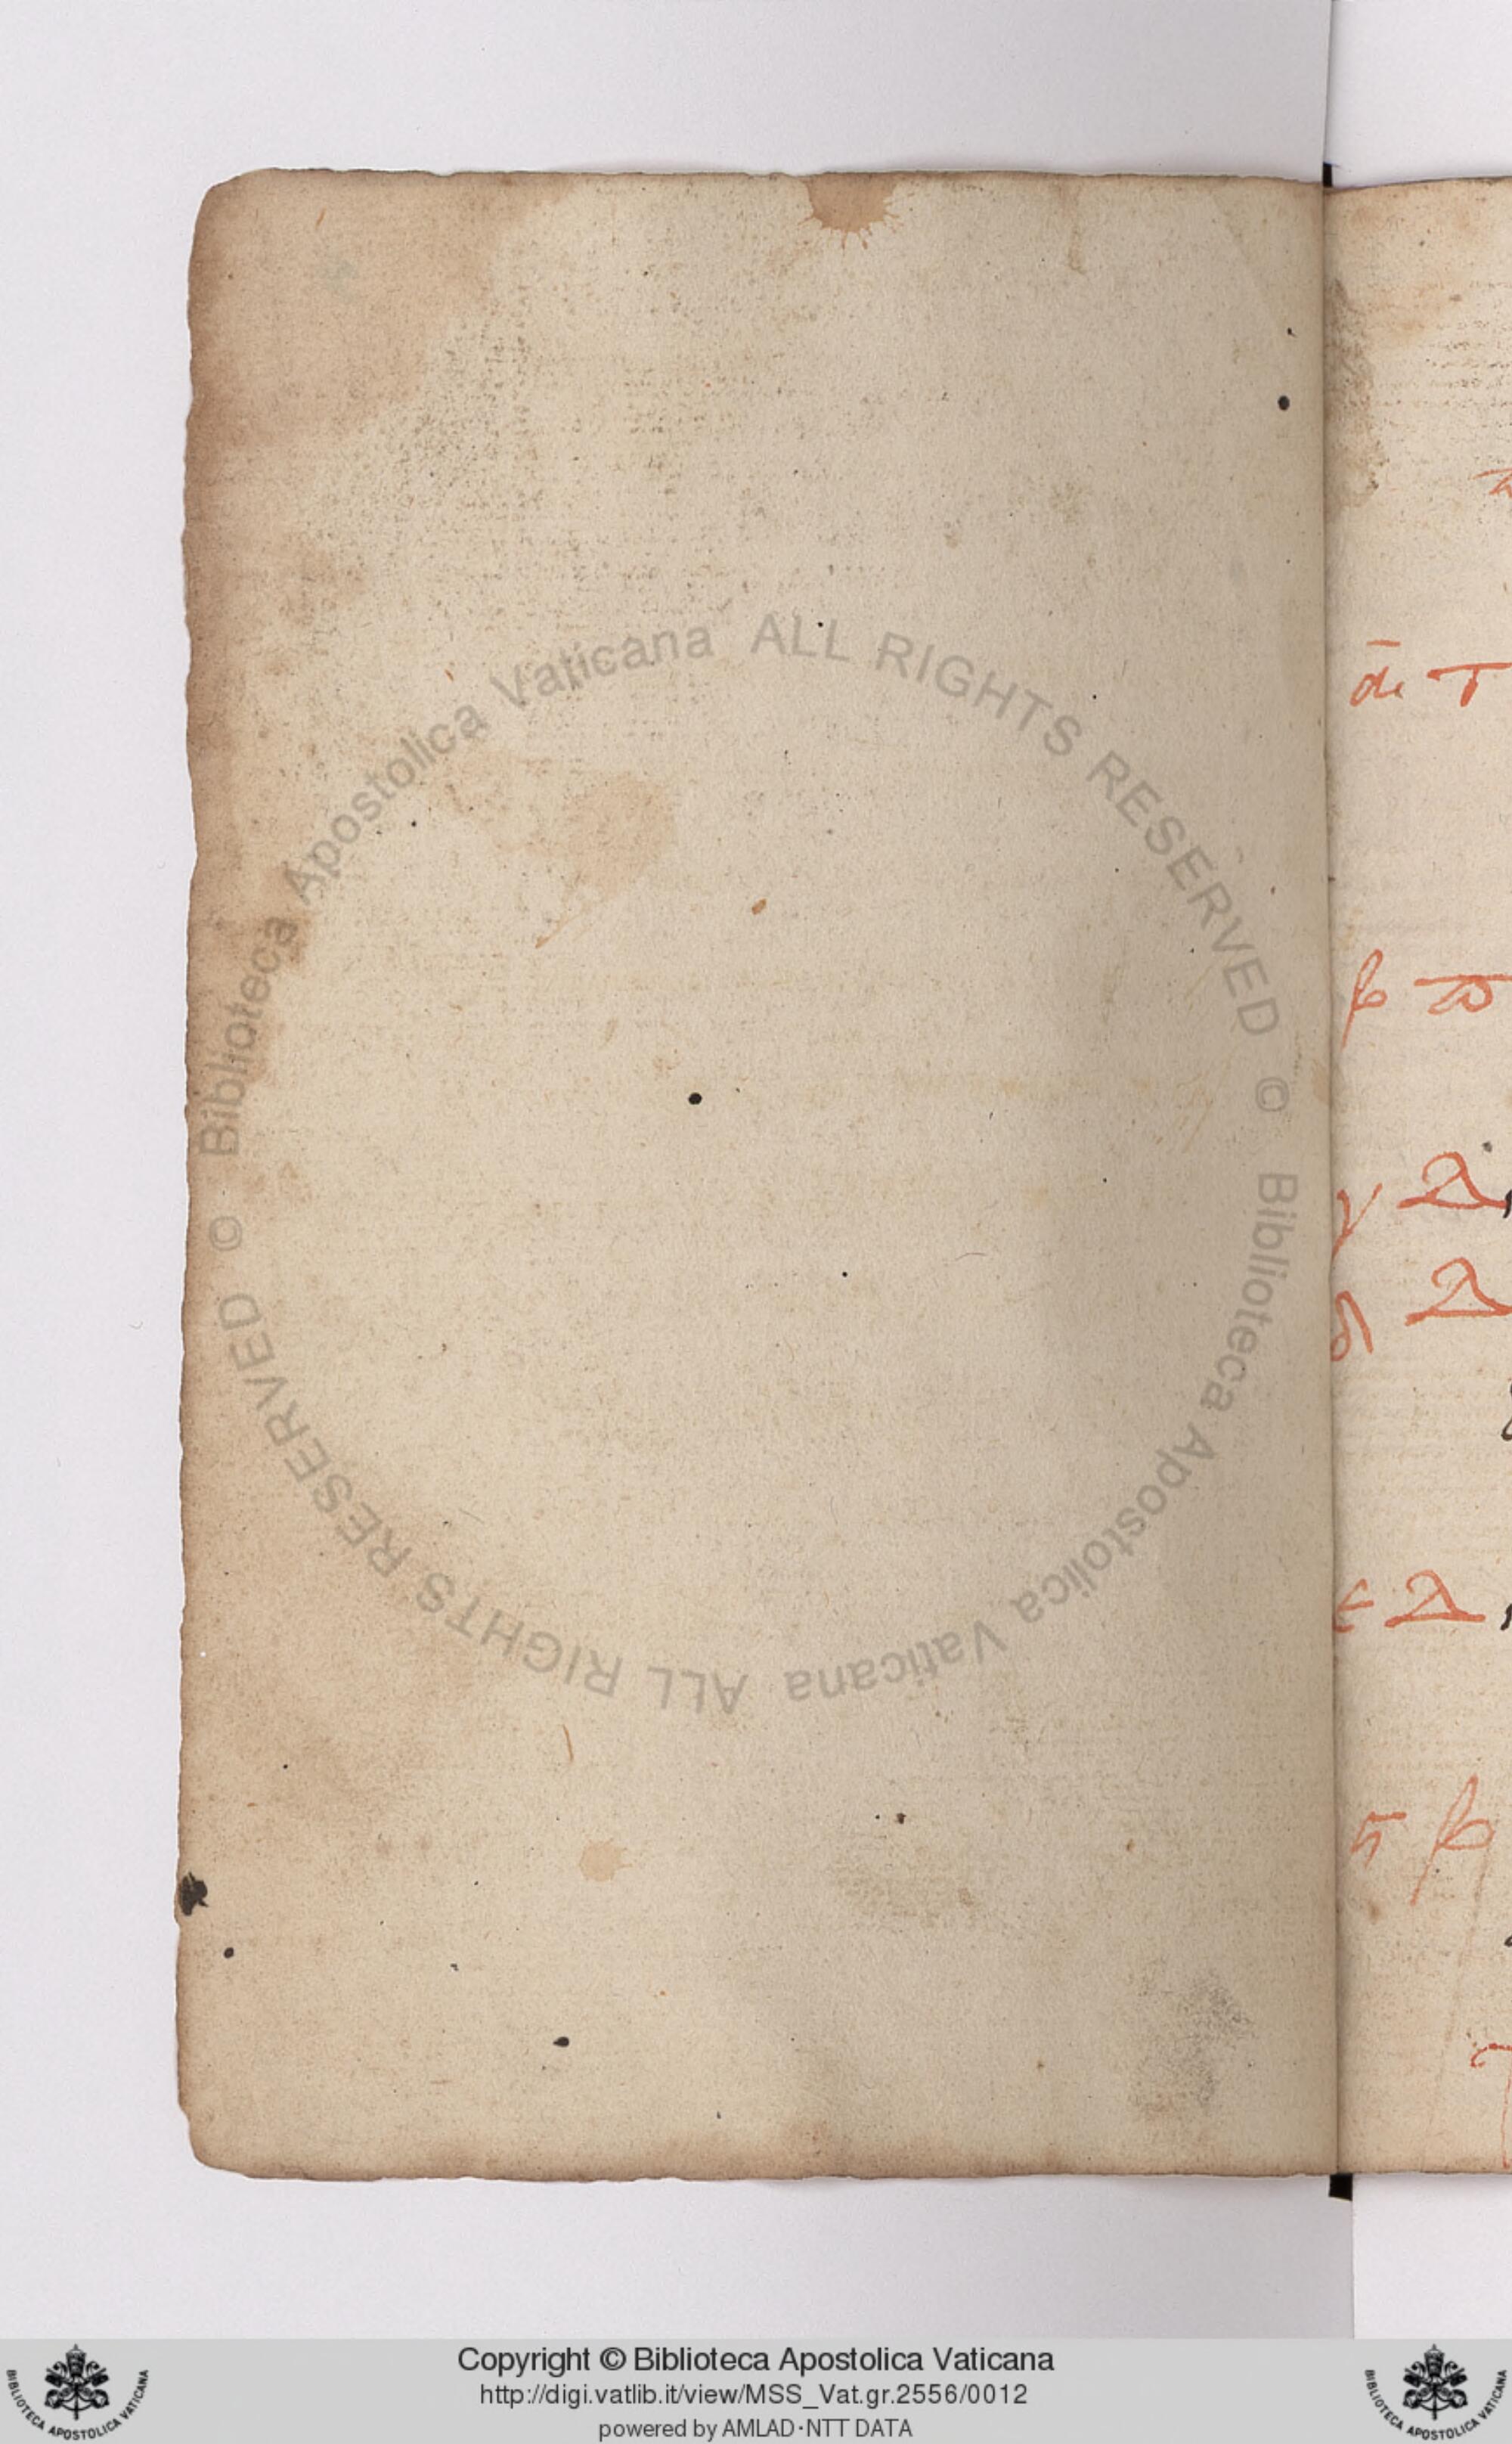 Biblioteca Apostolica Vaticana ALL RIGHTS RESERVED ©
Biblioteca Apostolica Vaticana ALL RIGHTS RESERVED ©
β
γ Δ
δ Δ
ε Δ
Copyright © Biblioteca Apostolica Vaticana
http://digi.vatlib.it/view/MSS_Vat.gr.2556/0012
powered by AMLAD·NTT DATA
BIBLIOTECA APOSTOLICA VATICANA
BIBLIOTECA APOSTOLICA VATICANA